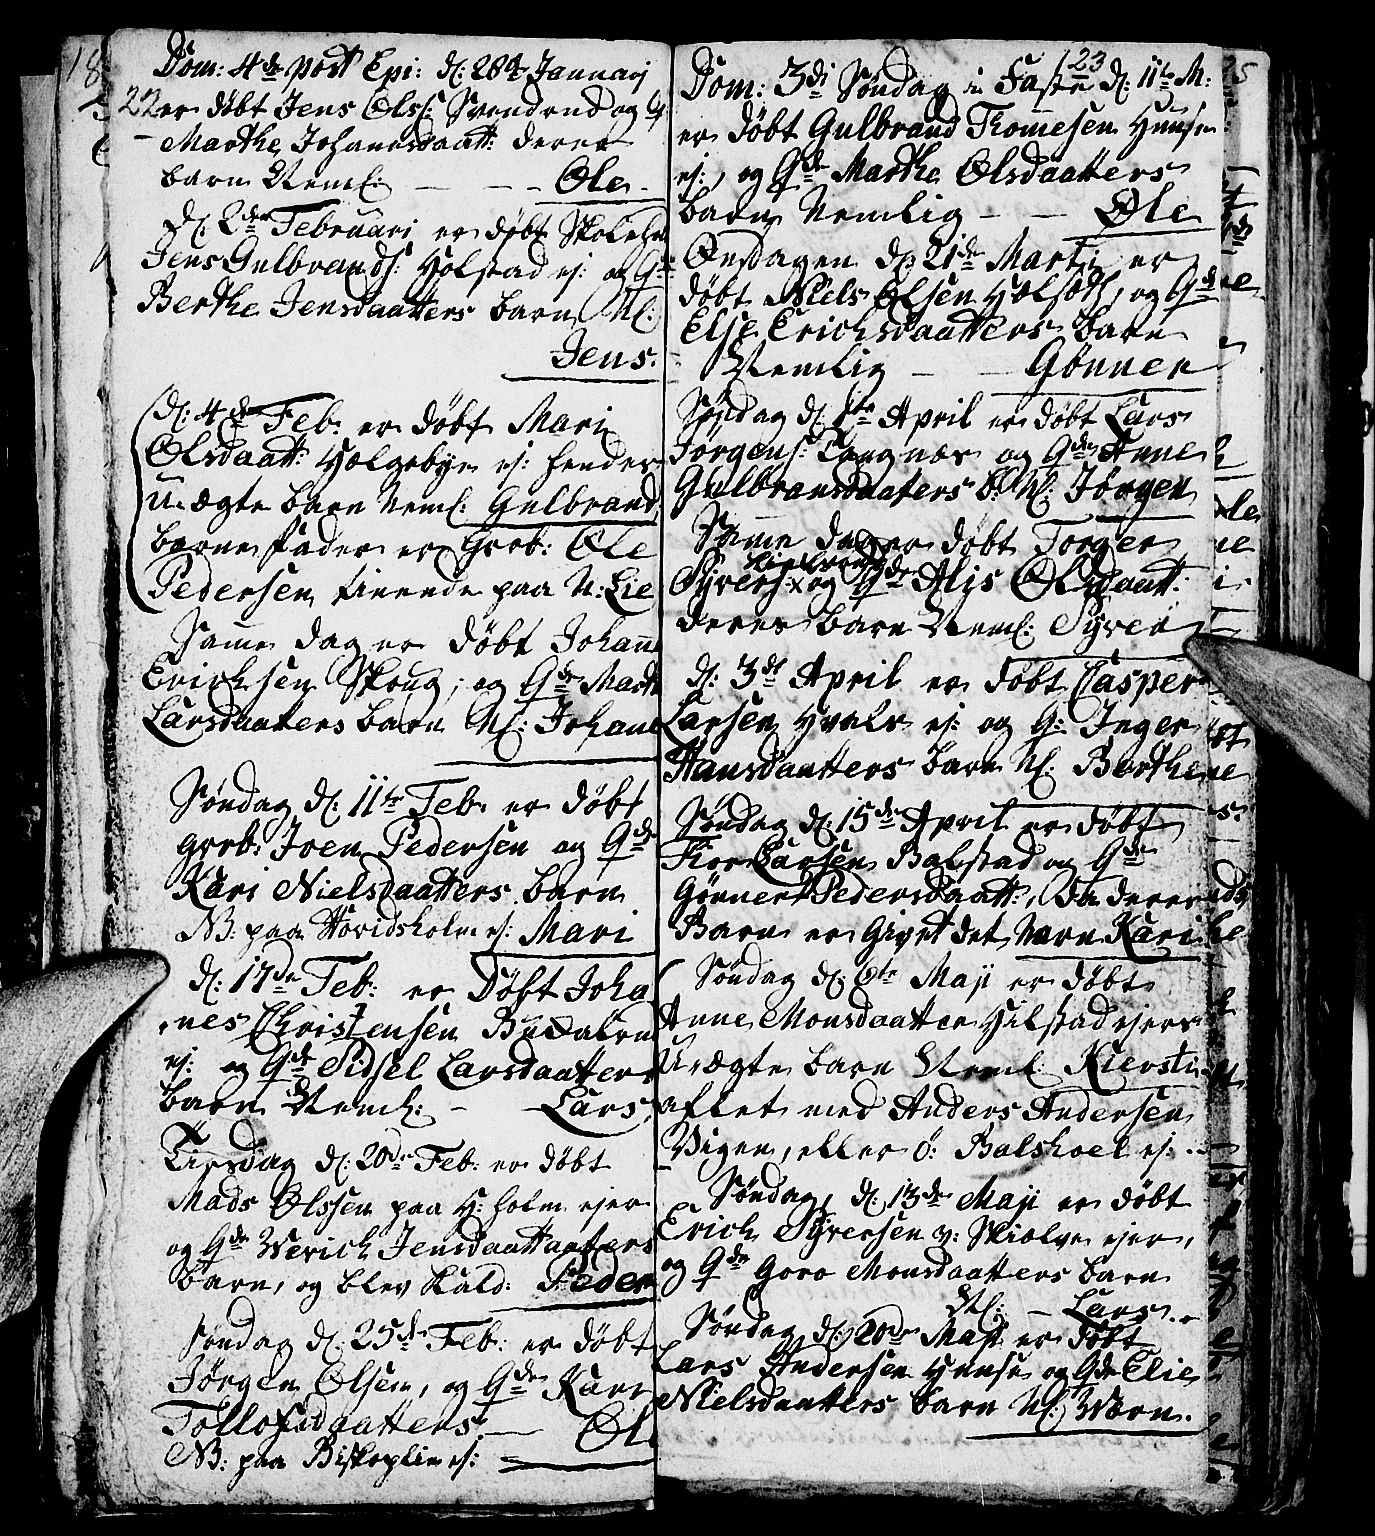 Dom: 4de post Epi: d: 28de Januarj
22 er döbt Jens Ols: Svendrud og G:
Marthe Johansdaatt: deres
barn Neml: - - - Ole
d: 2de Februari er döbt Skoleh
Jens Gulbrands: Holstad ej: og Gde
Berthe Jensdaatters barn Nl:
Jens.
d: 4de Feb: er döbt Mari
Olsdaatt: Hælgebye ej: hendes
Uægte barn Neml: Gulbrand
barne fader er Grob: Ole
Pedersen tienende paa N: Lie
Samme dag er döbt Johann
Erichsen Skoug, og Gde Marth
Larsdaatters barn Nl: Johann
Söndag d: 11te Feb: er döbt
grob: Joen Pedersen og Gde
Kari Nielsdaatters barn
NB: paa Hovidsholm ej: Mari
d: 17de Feb: er Döbt Joha
nes Christensen Budalen
ej: og Gde Sidsel Larsdaatters
barn Neml: - Lars
Tirsdag d: 20de Feb: er döbt
Mads Olssen paa H: holm ejer
og Gde Werich Jensdaattaatters
barn, og blev kald: Peder
Söndag d: 25de Feb: er döbt
Jörgen Olsen, og Gde Kari
Tollofsdaatters - Ole
NB: paa Biskoplie ej:
123
Dom: 3di Söndag in Faste d: 11te M:
er döbt Gulbrand Thomesen Hunse
ej:, og Gde Marthe Olsdaatters
barn Nemlig - - Ole
Onsdagen d: 21de Marti er
döbt Niels Olsen Hælseth, og Gde
Else Erichsdaatters barn
Nemlig - - Gönner
Söndag d: 1te April er döbt Lars
Jörgens: Langnæs og Gde Anne
Gulbransdaaters b: Nl: Jörgen
Samme dag er döbt Torger
Syvers: og Gde Alis Olsdaatt:
deres barn Neml: Syver
d: 3de April er döbt Casper
Larsen Hvals ej: og G: Inger
Hansdaatters barn Nl: Berthe
Söndag d: 15de April er döbt
Thor Larsen Balstad og Gde
Gönner Pedersdaatt:, Da deres
Barn er givet det Navn Kari
Söndag d: 6te Maji er döbt
Anne Monsdaatter Hilstad ejers
Uægte barn Neml: Kiersti
aflet med Anders Andersen
Vigen, eller ö: Balshoel ej:
Söndag, d: 13de Maji er döbt
Erich Syversen v: Skiælve ejer,
og Gde Goro Monsdaatters barn
Nl: - Lars
Söndag d: 20de Maji er döbt
Lars Andersen Hunse og Gde Elie
Nielsdaatters barn Nl: Warn.